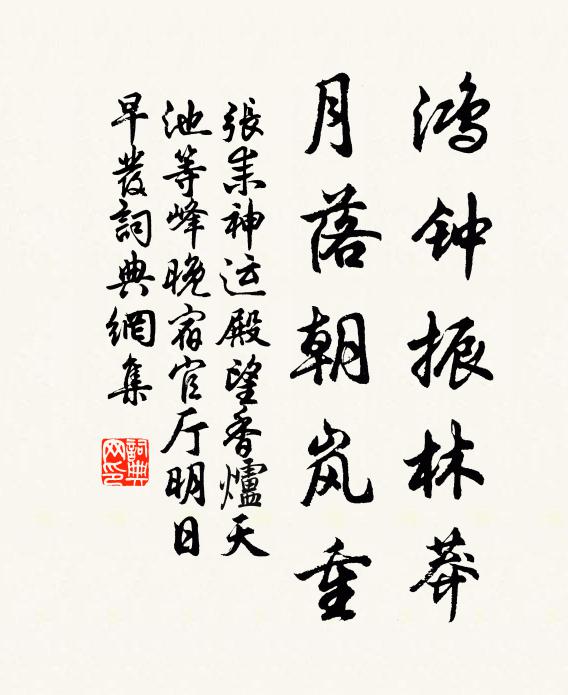 鸿钟振林莽
月落朝岚重
張耒神运殿望香爐天
池等峰晚宿官厅明日
早發詞典網集
詞典
网印